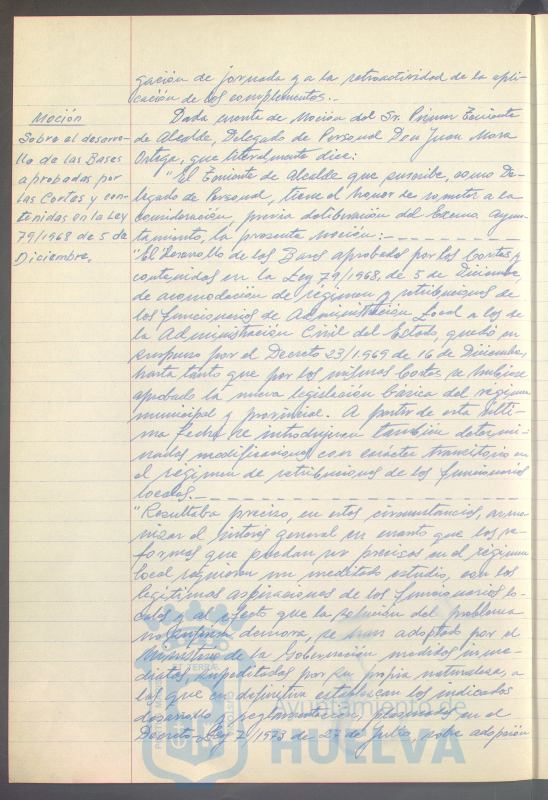 gación de jornada y a la retroactividad de la apli-
cación de los complementos.-
Moción
Sobre el desarro-
llo de las Bases
aprobadas por
las Cortes y con-
tenidas en la Ley
79/1968 de 5 de
Diciembre.
Dada cuenta de Moción del Sr. Primer Teniente
de Alcalde, Delegado de Personal Don Juan Mora
Ortega, que literalmente dice:
"El Teniente de Alcalde que suscribe, como De-
legado de Personal, tiene el honor de someter a la
consideración, previa deliberación del Excmo Ayun-
tamiento, la presente moción:-
"El Desarrollo de las Bases aprobadas por las Cortes y
contenidas en la Ley 79/1968, de 5 de Diciembre,
de acomodación de régimen y retribuciones de
los funcionarios de Administración Local a los de
la Administración Civil del Estado, quedó en
suspenso por el Decreto 23/1.969 de 16 de Diciembre,
hasta tanto que por las mismas Cortes se hubiese
aprobado la nueva legislación básica del régimen
municipal y provincial. A partir de esta últi-
ma fecha se introdujeron también determi-
nadas modificaciones con carácter transitorio en
el régimen de retribuciones de los funcionarios
locales.-
"Resultaba preciso, en estas circunstancias, armo-
nizar el interés general en cuanto que las re-
formas que puedan ser precisas en el régimen
local requieran un meditado estudio, con las
legítimas aspiraciones de los funcionarios lo-
cales y al efecto que la solución del problema
no sufriera demora, se han adoptado por el
Ministerio de la Gobernación medidas inme-
diatas por su propia naturaleza, a
las que en definitiva establezcan los indicados
desarrollo y reglamentación, plasmadas en el
Decreto-Ley 7/1973 de 27 de Julio, sobre adopción
Ayuntamiento de
HUELVA